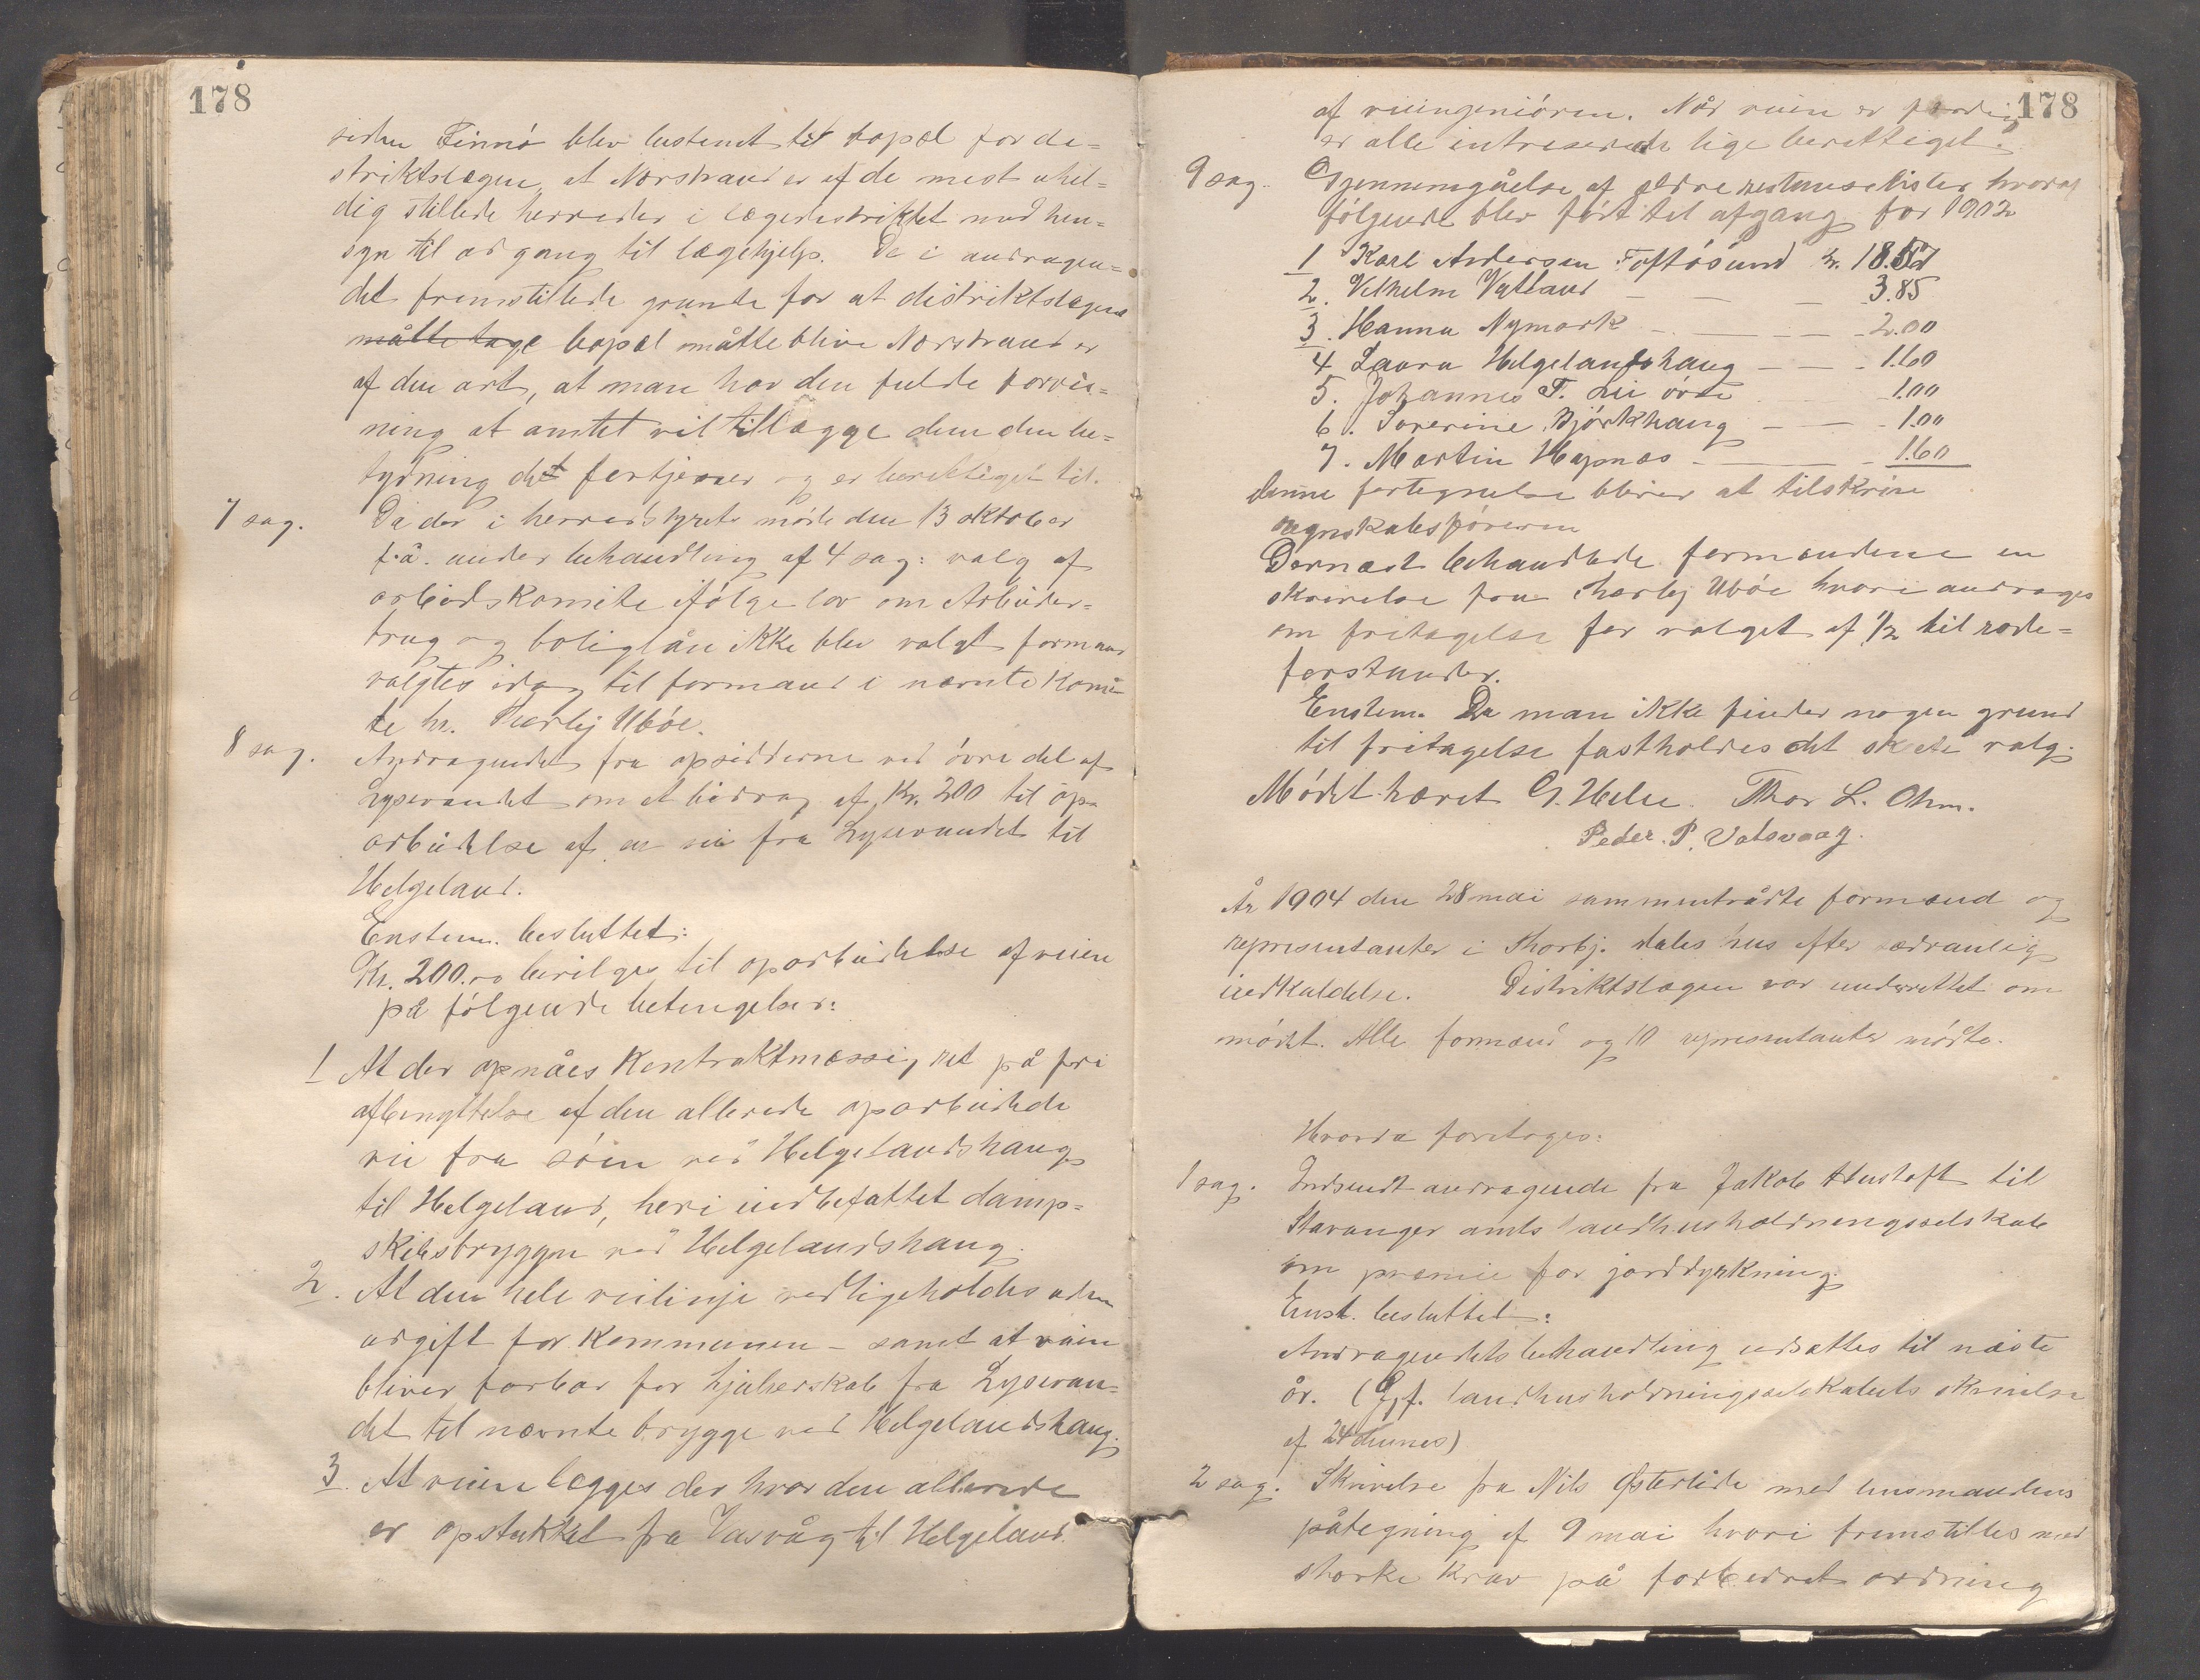 178
siden Finnö blev bestemt til bopæl for di=
striktslægen, at Norstrand er af de mest uhel=
dig stillede herreder i lægedistriktet med hen=
syn til adgang til lægehjelp. De i andragen=
det fremstillede grunde for at distriktslægens
måtte tage bopæl måtte blive Norstrand er
af den art, at man har den fulde forvis=
ning at amtet vil tillægge dem den be=
tydning det fortjener og er berettiget til.
7 sag. Da der i herredstyrets møde den 13 oktober
f.å. under behandling af 4 sag: valg af
arbeidskomite ifølge lov om Arbeider=
brug og boliglån ikke blev valgt formand
valgtes idag til formand i nævnte komi
te hr. Thorbj Ubøe.
8 sag. Andragendet fra opsidderne ved övre del af
Lysevandet om et bidrag af Kr. 200 til op=
arbeidelse af en vei fra Lysevandet til
Helgeland.
Enstem. besluttet:
Kr. 200.00 bevilges til oparbeidelse af veien
på følgende betingelser:
1 At der opnåes kontraktmæssig ret på fri
afbenyttelse af den allerede oparbeidede
vei fra søen ved Helgelandshaug
til Helgeland, heri indbefattet damp=
skibsbryggen ved Helgelandshaug.
2. At den hele veilinje vedligeholdes uden
udgift for kommunen – samt at veien
bliver farbar for hjulredskab fra Lysevan=
det til nævnte brygge ved Helgelandshaug.
3. At veien lægges der hvor den allerede
er opstukket fra Vasvåg til Helgeland
178
af veiingeniören. Når veien er færdig
er alle intreserede lige berettiget.
9 sag. Gjennemgåelse af ældre restanselister hvoraf
følgende blev ført til afgang for 1902
1 Karl Andersen Toftøsund Kr. 18.57
2. Vilhelm Vatland – – – 3.85
3. Hanna Nymark – – – 2.00
4 Laura Helgelandshaug – – – 1.60
5. Johannes T. 1.00
6. Sørerine Bjørkhaug – – – 1.00
7. Martin Høynæs – – – 1.60
denne fortegnelse bliver at tilskrive
regnskabsføreren
Dernæst behandlede formændene en
skrivelse fra Thorbj Ubøe hvori andrages
om fritagelse for valget af ½ til rode=
forstander.
Enstem. Da man ikke finder nogen grund
til fritagelse fastholdes det skete valg.
Mødet hævet G. Helse. Thor L. Ohm.
Peder. P. Vatsvaag.
År 1904 den 28 mai sammentrådte formænd og
representanter i Thorbj. dales hus efter sædvanlig
indkaldelse. Distriktslægen var underrettet om
mødet. Alle formænd og 10 representanter mødte.
Hvorda foretages:
1 sag. Indsendt andragende fra Jakob Hustoft til
Stavanger amts landhusholdningsselskab
om præmie for jorddyrkning.
Enst. besluttet:
Andragendets behandling udsættes til næste
år. (Cfr. landhusholdningsselskabets skrivelse
af 24 dennes)
2 sag. Skrivelse fra Nils Østerlide med lensmandens
påtegning af 9 mai hvori fremstilles med
sterke krav på forbedret ordning